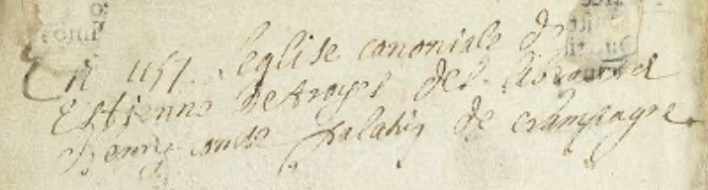 En 1157. Leglise canoniale de
Estienne de troyes des
henry conte palatin de champagne.